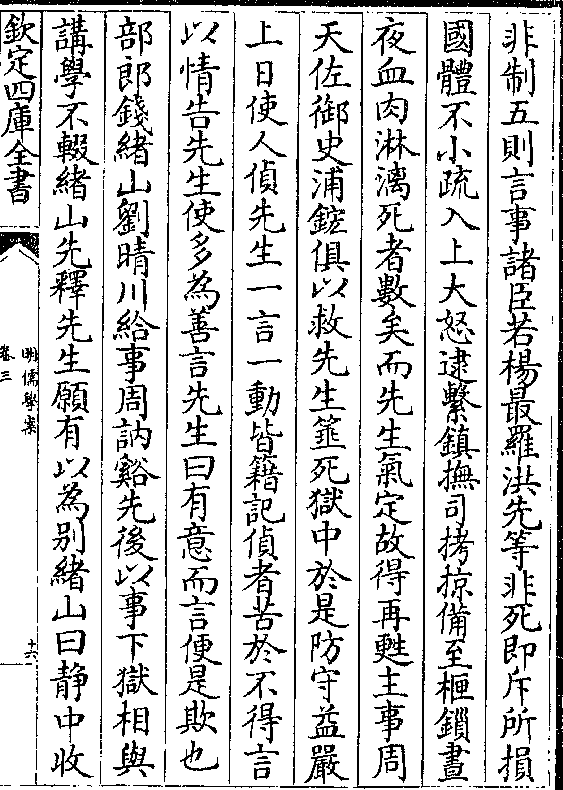 非制五則言事諸臣若楊最羅洪先等非死即斥所損
國體不小疏入上大怒逮繫鎮撫司拷掠備至柙鎖晝
夜血肉淋漓死者數矣而先生氣定故得再甦主事周
天佐御史浦鋐俱以救先生箠死獄中於是防守益嚴
上日使人偵先生一言一動皆籍記偵者苦於不得言
以情告先生使多為善言先生曰有意而言便是欺也
部郎錢緒山劉晴川給事周訥谿先後以事下獄相與
講學不輟緒山先釋先生願有以為别緒山曰静中收
欽定四庫全書
明儒學案
卷三
十六